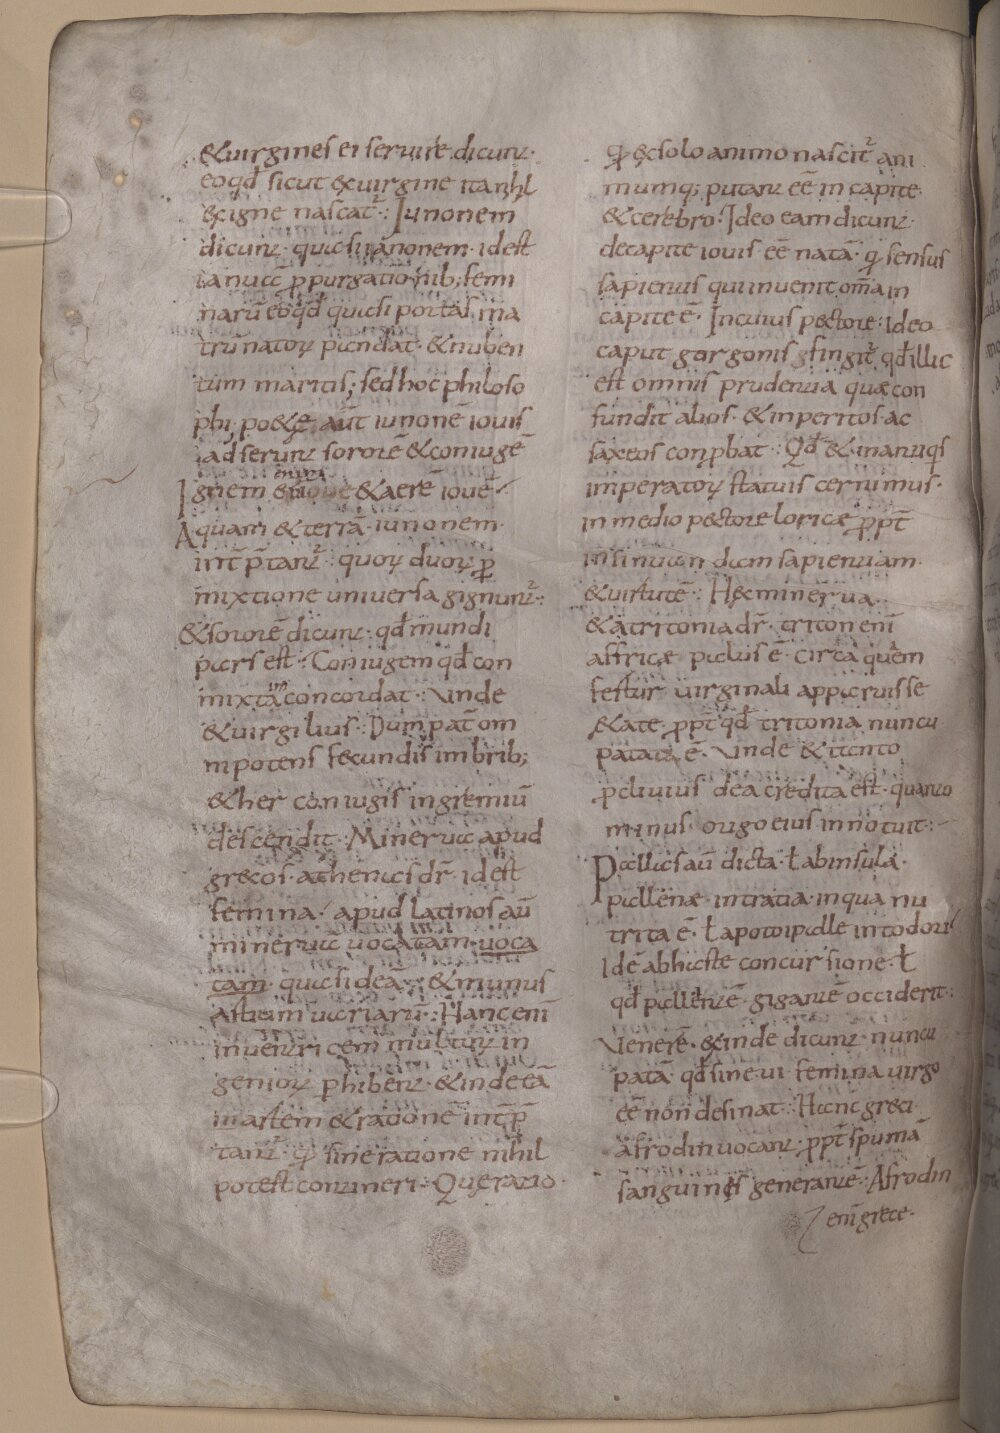 &uirgines ei seruire dicunt·
eo qđ sicut exuirgine ita nihil
exigne nascat᷑· Iunonem
dicunt· quasi ianonem· idest
ianuā ꝓpurgationib; femi
narū eo qđ quasi portas ma
trū natorꝝ pandat· & nuben
tum maritis; sed hoc philoso
phi· poetę aūt iunonē iouis
adserunt sororē & coniugē
Ignem enim & aerē iouē
Aquam & terrā· iunonem·
int̄p̄tant᷑· quorꝝ duorꝝ ꝑ
mixtione uniuersa gignunt᷑·
& sororē dicunt· qđ mundi
pars est· Coniugem qđ con
mixtā concordat· Vnde
& uirgilius· Dum pat̄ om
nipotens fecundis imbrib;
& her coniugis in gremiū
descendit· Minerua apud
grecos· athenas dr̄· idest
femina· apud latinos aū
mineruā uocatam· uoca
tam· quasi deā· & munus
Artium uariarū· Hanc enī
inuentricem multorꝝ in
geniorꝝ ꝑhibent· & inde eā
martem & rationē int̄p̄
tant᷑· q̄ sine ratione nihil
potest contineri· Que ratio·
q̄ exsolo animo nascit᷑ ani
mumq; putant eē in capite·
& cerebro· Ideo eam dicunt·
decapite iouis eē natā· q̄ sensus
sapientis qui inuenit om̄a in
capite ē· Incuius pectore· Ideo
caput gorgonis fingit᷑ qđ illic
est omnis prudentia quae con
fundit alios· & inperitos ac
saxeos conꝓbat· Qđ & in antiqis
imperatorꝝ statuis cernimus·
in medio pectore loricae ꝓpt̄
insinuan dam sapientiam·
& uirtutē· Hęc minerua
& tritonia dr̄· triton enī
affricae palus ē· circa quem
fertur uirginali apparuisse
&ate· ꝓpt̄ qđ tritonia nuncu
patata ē· Vnde & tanto
ꝓcliuius dea credita est· quanto
minus· origo eius innotuit·
Pallas aū dicta· ł ab insula·
pallenae intratia· in qua nu
trita ē· ł apotoipalle intodori
Idē abhaste concursione· ł
qđ pallentē· gigantē occiderit·
Venerē· exinde dicunt· nuncu
patā· qđ sine ui femina uirgo
eē non desinat· Hanc greci
afrodin uocant· ꝓpt̄ spumā
sanguinis generantē· Afrodin
enī grece·